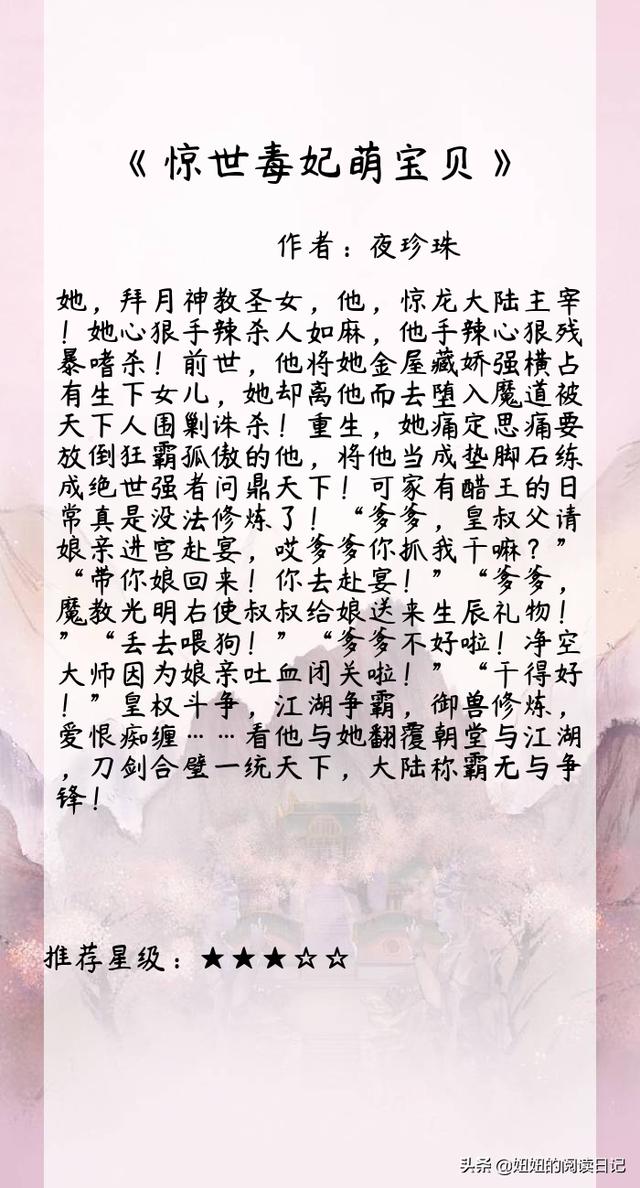 《惊世毒妃萌宝贝》
作者：夜珍珠
她，拜月神教圣女，他，惊龙大陆主宰
！她心狠手辣杀人如麻，他手辣心狠残
暴嗜杀！前世，他将她金屋藏娇强横占
有生下女儿，她却离他而去堕入魔道被
天下人围剿诛杀！重生，她痛定思痛要
放倒狂霸孤傲的他，将他当成垫脚石练
成绝世强者问鼎天下！可家有醋王的日
常真是没法修炼了！“爹爹，皇叔父请
娘亲进宫赴宴，哎爹爹你抓我干嘛？”
“带你娘回来！你去赴宴！”“爹爹，
魔教光明右使叔叔给娘送来生辰礼物！
”“丢去喂狗！”“爹爹不好啦！净空
大师因为娘亲吐血闭关啦！”“干得好
！”皇权斗争，江湖争霸，御兽修炼，
爱恨痴缠……看他与她翻覆朝堂与江湖
，刀剑合璧一统天下，大陆称霸无与争
锋！
推荐星级：★★★☆☆
头条@妞妞的阅读日记